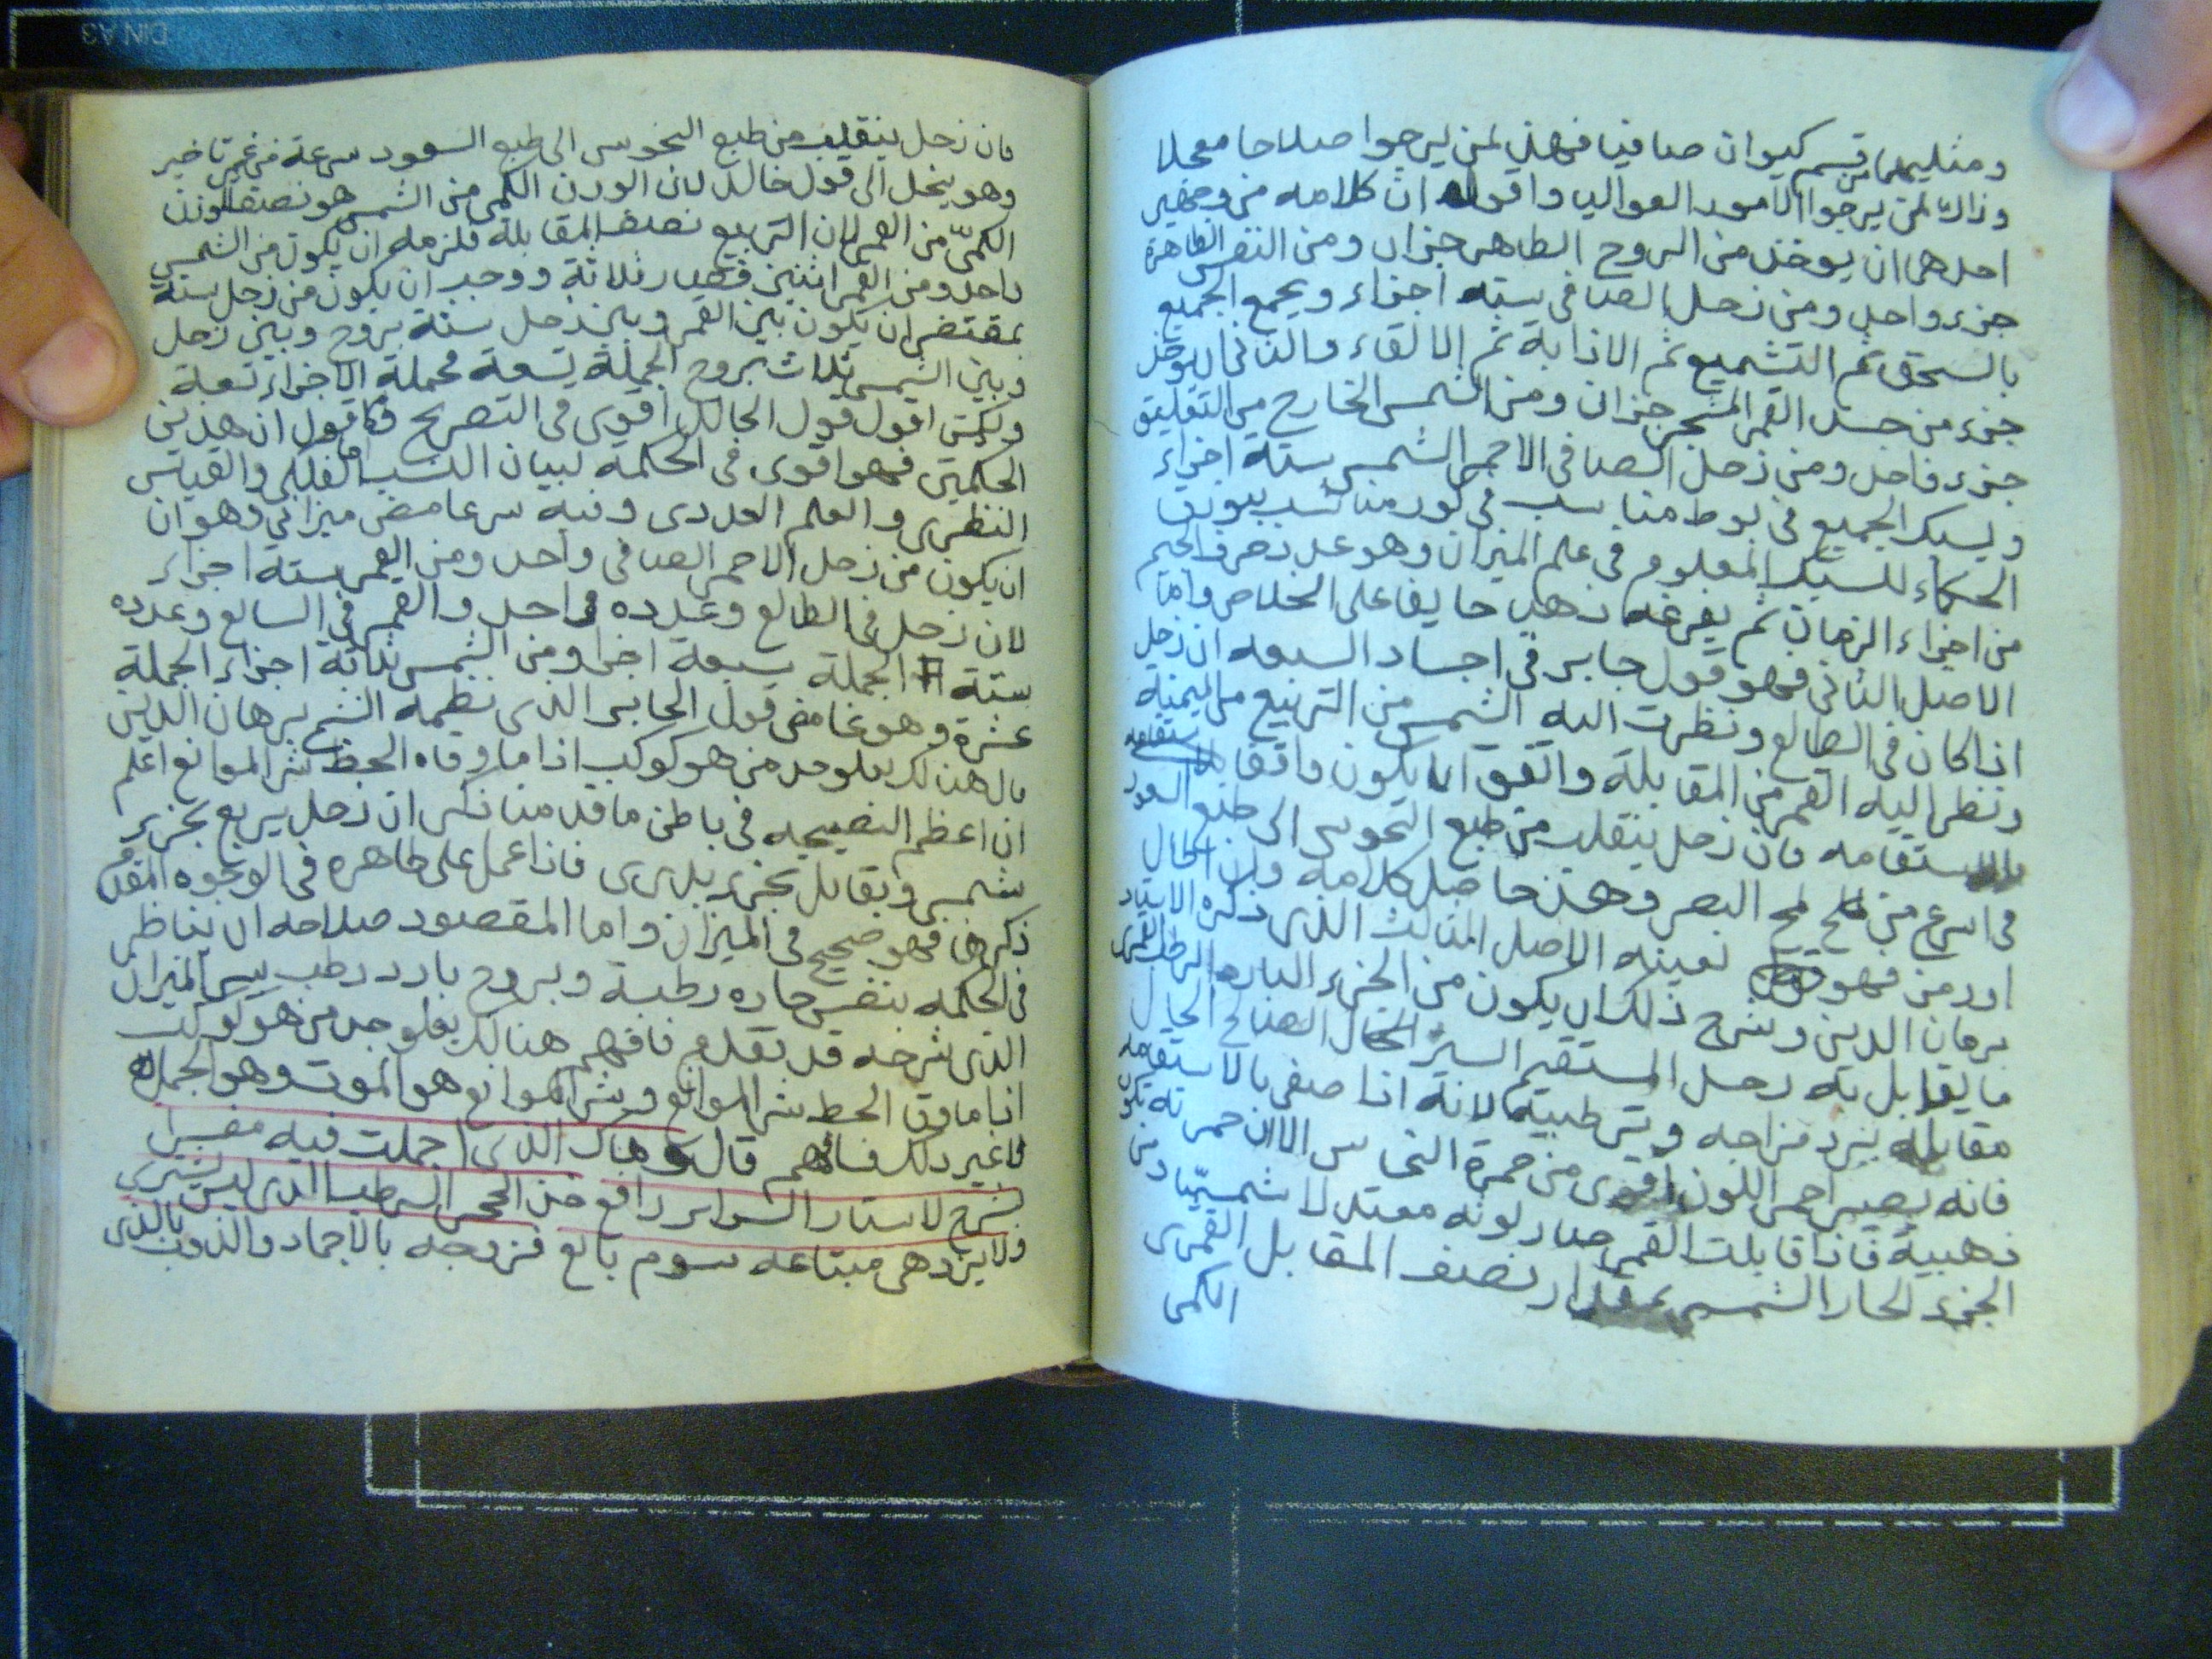 ومثليهما من قسم كيوان صافيا فهذي لمن يرجوا صلاحا معجلا
وذاك لمن يرجوا الامور العواليا واقول ان كلامه من وجهين
احدهما ان يوخذ من الروح الطاهر جزان ومن النفس الطاهرة
جزء واحد ومن زحل الصافى ستة اجزاء ويجمع الجميع
بالسحق ثم التشميع ثم الاذابة ثم الالقاء والثانى ان يوخذ
جزء من جسد القمر جزان ومن الشمس الخارج من التعليق
جزء واحد ومن زحل الصافى الاحمر الشمسى ستة اجزاء
ويسبك الجميع فى بوط مناسب فى كور مناسب
الحكماء للسبك المعلوم فى علم الميزان وهو عدد حرف الجيم
من اجزاء الزمان ثم يفرغه ذهبا على الخلاص واما
الاصل الثانى فهو قول جابر فى اجساد السبعه ان زحل
اذا كان فى الطالع ونظرت اليه الشمس من التربيع من الميمنة
ونظر اليه القمر من المقابلة واتفق ان يكون واقفا
بالاستقامه فان زحل ينقلب من طبع النحوس الى طبع السعود
فى اسرع من لمح البصر وهذا حاصل كلامه
فهو بعينه الاصل الثالث الذى ذكره الاستاد
برهان الدين وشرح ذلك ان يكون من الجزء البارد الرطب القمرى
ما يقابل به زحل المستقيم السير الحال الصالح الحال
مقابلة يبرد مزاجه وترطيبه لانه اذا صفى بالاستقامه
فانه يصير احمر اللون اقوى من حمرة النحاس الا ان حمرته تكون
ذهبية فاذا قابلت القمر صار لونه معتدلا شمسيا ومن
الجزء الحار الشمسى بمقدار نصف المقابل القمرى
الكمى
فان زحل ينقلب من طبع النحوس الى طبع السعود سرعة من غير تاخير
وهو ينحل الى قول خالد لان الوزن الكمى من الشمس هو نصف الوزن
الكمى من القمر لان التربيع نصف المقابلة فلزمه ان يكون من الشمس
واحد ومن القمر اثنين فصار ثلاثة ووجب ان يكون من زحل ستة
بمقتضى ان يكون بين القمر وبين زحل ستة بروج وبين زحل
وبين الشمس ثلاث بروج الجملة تسعة فجملة الاجزاء تسعة
ولكنى اقول قول اقوى فى التصريح فاقول ان هذين
الحكمتين فهو اقوى فى الحكمة لبيان النسب الفلكى والقياس
النظرى والعلم العددى وفيه سر غامض ميزانى وهو ان
ان يكون من زحل الاحمر الصافى واحد ومن القمر ستة اجزاء
لان زحل فى الطالع وعدده واحد والقمر فى السابع وعدده
ستة الجملة سبعة اجزا ومن الشمس ثلاثة اجزاء الجملة
عشرة وهو غامض قول الجابر الذى نظمه الشيخ برهان الدين
هنالك يعلو جد من هو كوكب اذا ما وقاه الحظ شر الموانع اعلم
ان اعظم النصيحه فى باطن ما قدمنا ذكر ان زحل يربع بجزء
شمسى ويقابل بجزء بدرى فاذا عمل على ظاهره فى الوجوه المقدم
ذكرها فهو صحيح فى الميزان واما المقصود صلاحه ان يناظر
فى الحكمه بنفس حاره رطبة وبروح بارد رطب بسر الميزان
الذى شرحه قد تقدم فافهم هنالك يعلو جد من هو كوكب
اذا ما وقى الحظ شر الموانع وشر الموانع هو الموت وهو الجمله
لا غير ذلك فافهم قال وهاك الذى اجملت فيه مفسرا
بشرح لاستار السراير رافع خذ الحجر الرطب الذى ليس يشترى
ولا يزدهى مبتاعه سوم بائع فزوجه بالاجماد والذوب بالذى